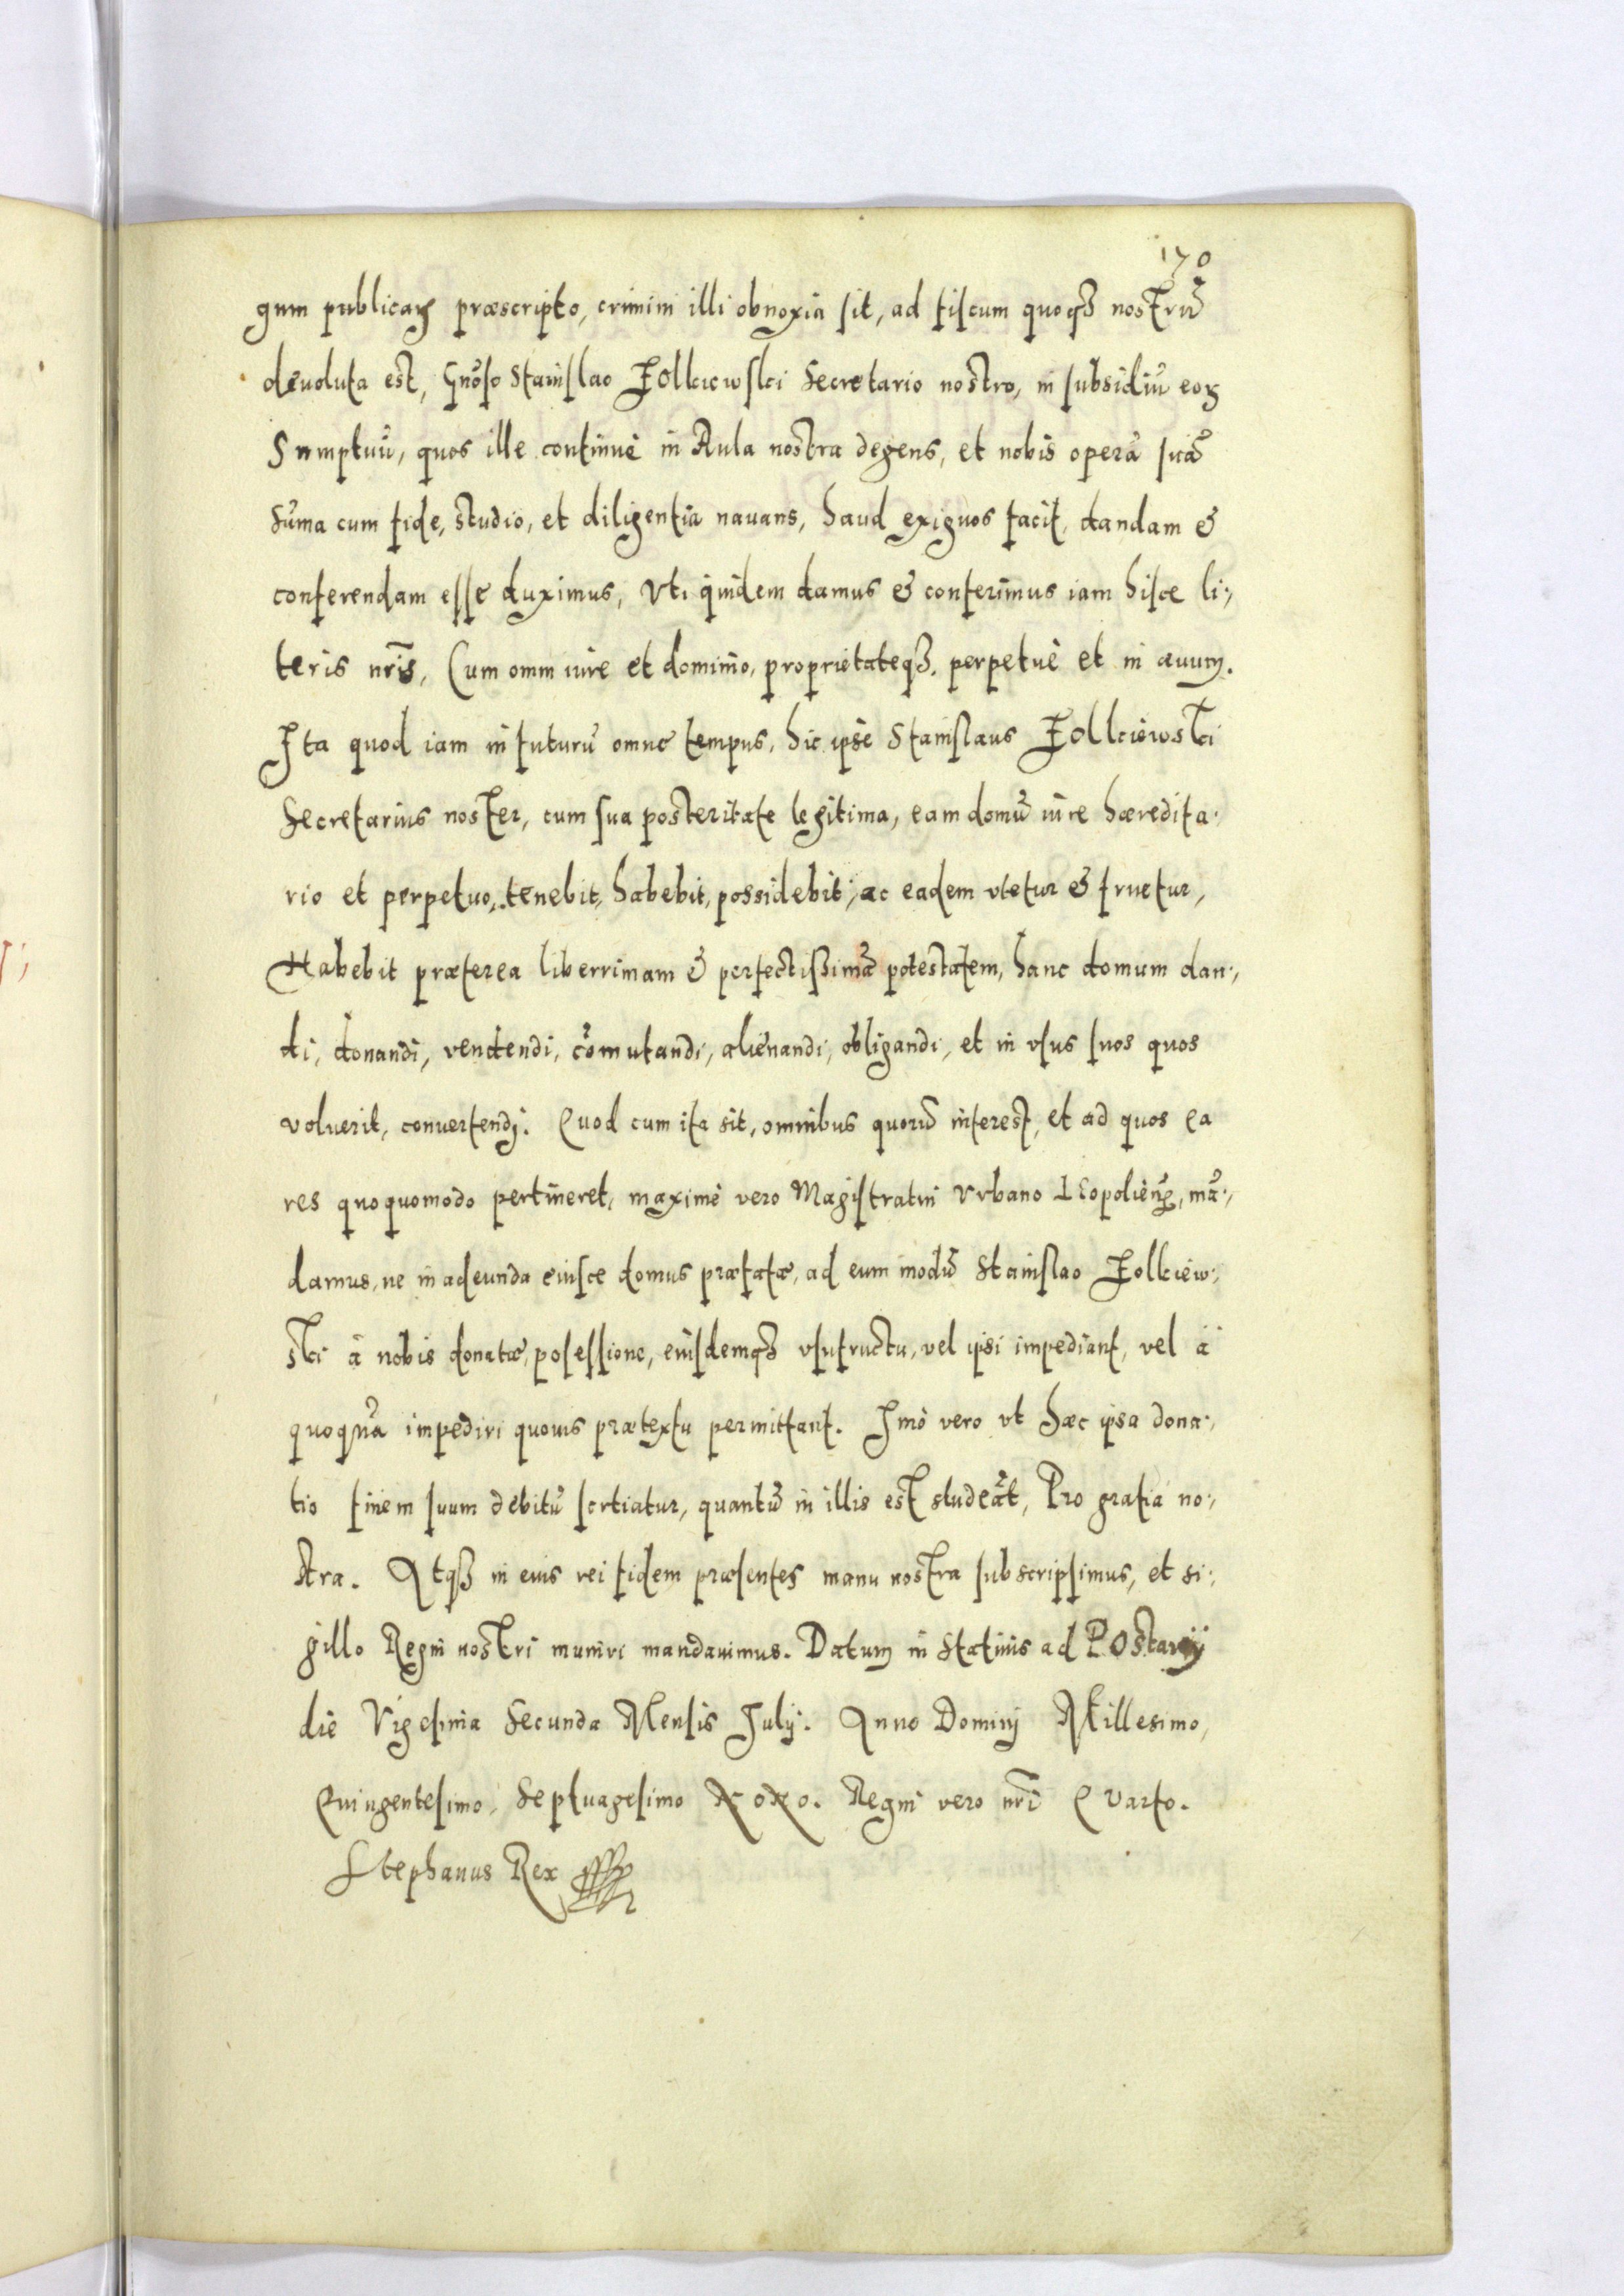 170
gum publicaꝝ præscripto, crimini illi obnoxia sit, ad fiscum quoqꝫ nostrũ
deuoluta est, Gnõso Stanislao Żolkiewski Secretario nostro, in subsidiũ eoꝝ
Sumptuũ, quos ille continuè in Aula nostra degens, et nobis operã suã
sũma cum fide, studio, et diligentia nauans, haud exiguos facit, dandam &
conferendam esse duximus, Vti quidem damus & conferimus iam hisce li:,
teris nr̃is, Cum omni iure et dominio, proprietateqꝫ, perpetuè et in æuum.
Ita quod iam in futurũ omne tempus, hic ipse Stanislaus Żolkiewski
Secretarius noster, cum sua posteritate legitima, eam domũ iure hæredita:
rio et perpetuo, tenebit, habebit, possidebit, ac eadem vtetur & fruetur,
Habebit præterea liberrimam & perfectissimã potestatem, hanc domum dan:,
di, donandi, vendendi, cõmutandi, alienandi, obligandi, et in vsus suos quos
voluerit, conuertendi. Quod cum ita sit, omnibus quorũ interest, et ad quos ea
res quoquomodo pertineret, maximè vero Magistratui Vrbano Leopolieñ, mã:,
damus, ne in adeunda eiusce domus præfatæ, ad eum modũ Stanislao Żolkiew:,
ski à nobis donatæ, posessione, eiusdemqꝫ vsufructu, vel ipsi impediant, vel à
quoquã impediri quouis prætextu permittant. Imò vero vt hæc ipsa dona:,
tio finem suum debitũ sortiatur, quantũ in illis est studeãt, Pro gratia no:,
stra. Atqꝫ in eius rei fidem præsentes manu nostra subscripsimus, et si:,
gillo Regni nostri muniri mandauimus. Datum in Statiuis ad Postawÿ
die Vigesima Secunda Mensis Julij. Anno Domini Millesimo,
Quingentesimo, Septuagesimo Nono. Regni vero nr̃i Quarto.
Stephanus Rex